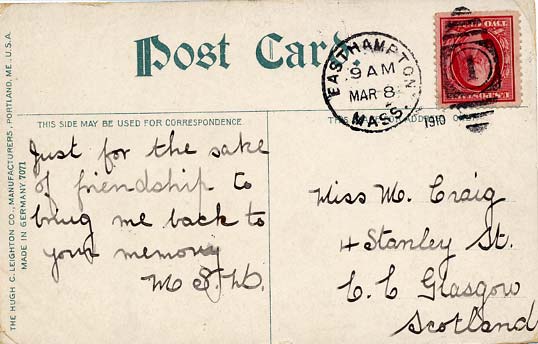 Post Card.
EASTHAMPTON
9 AM
MAR 8
MASS.
1910
THIS SIDE MAY BE USED FOR CORRESPONDENCE
Just for the sake
of friendship to
bring me back to
your memory
M S. W.
Miss M. Craig
4 Stanley St.
C. C Glasgow
Scotland
THE HUGH C. LEIGHTON CO., MANUFACTURERS, PORTLAND, ME., U.S.A.
MADE IN GERMANY 7071